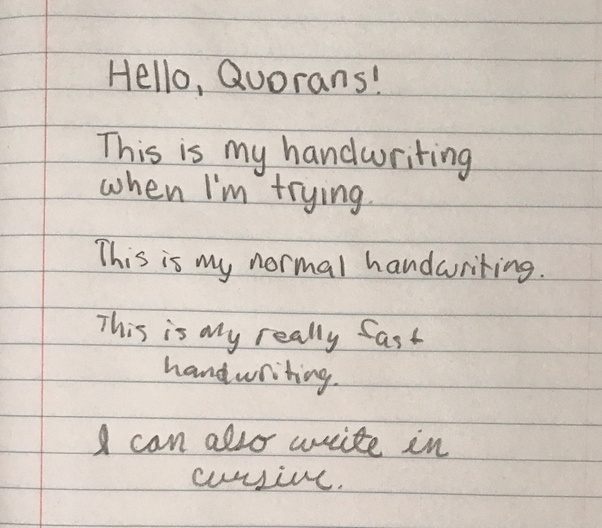 Hello, Quorans!
This is my handwriting
when I'm trying.
This is my normal handwriting.
This is my really fast
handwriting.
I can also write in
cursive.